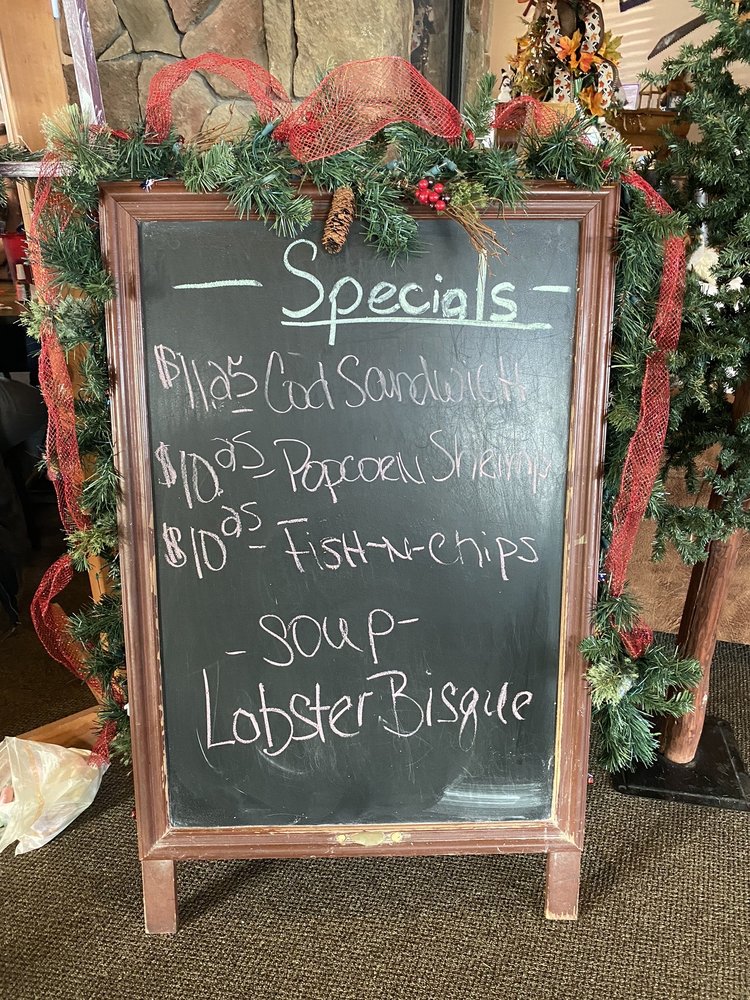 - Specials -
$11.25 Cod Sandwich
$10.25- Popcorn Shrimp
$10.25- Fish-N-Chips
-Soup-
Lobster Bisque